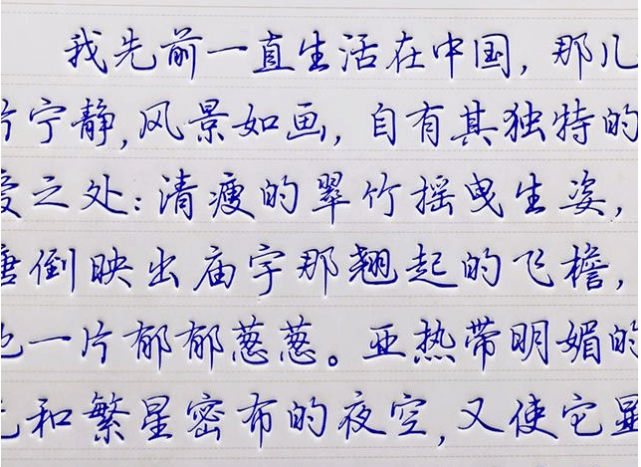 我先前一直生活在中国，那儿
片宁静，风景如画，自有其独特的
爱之处：清瘦的翠竹摇曳生姿，
塘倒映出庙宇那翘起的飞檐，
地一片郁郁葱葱。亚热带明媚的
光和繁星密布的夜空，又使它显